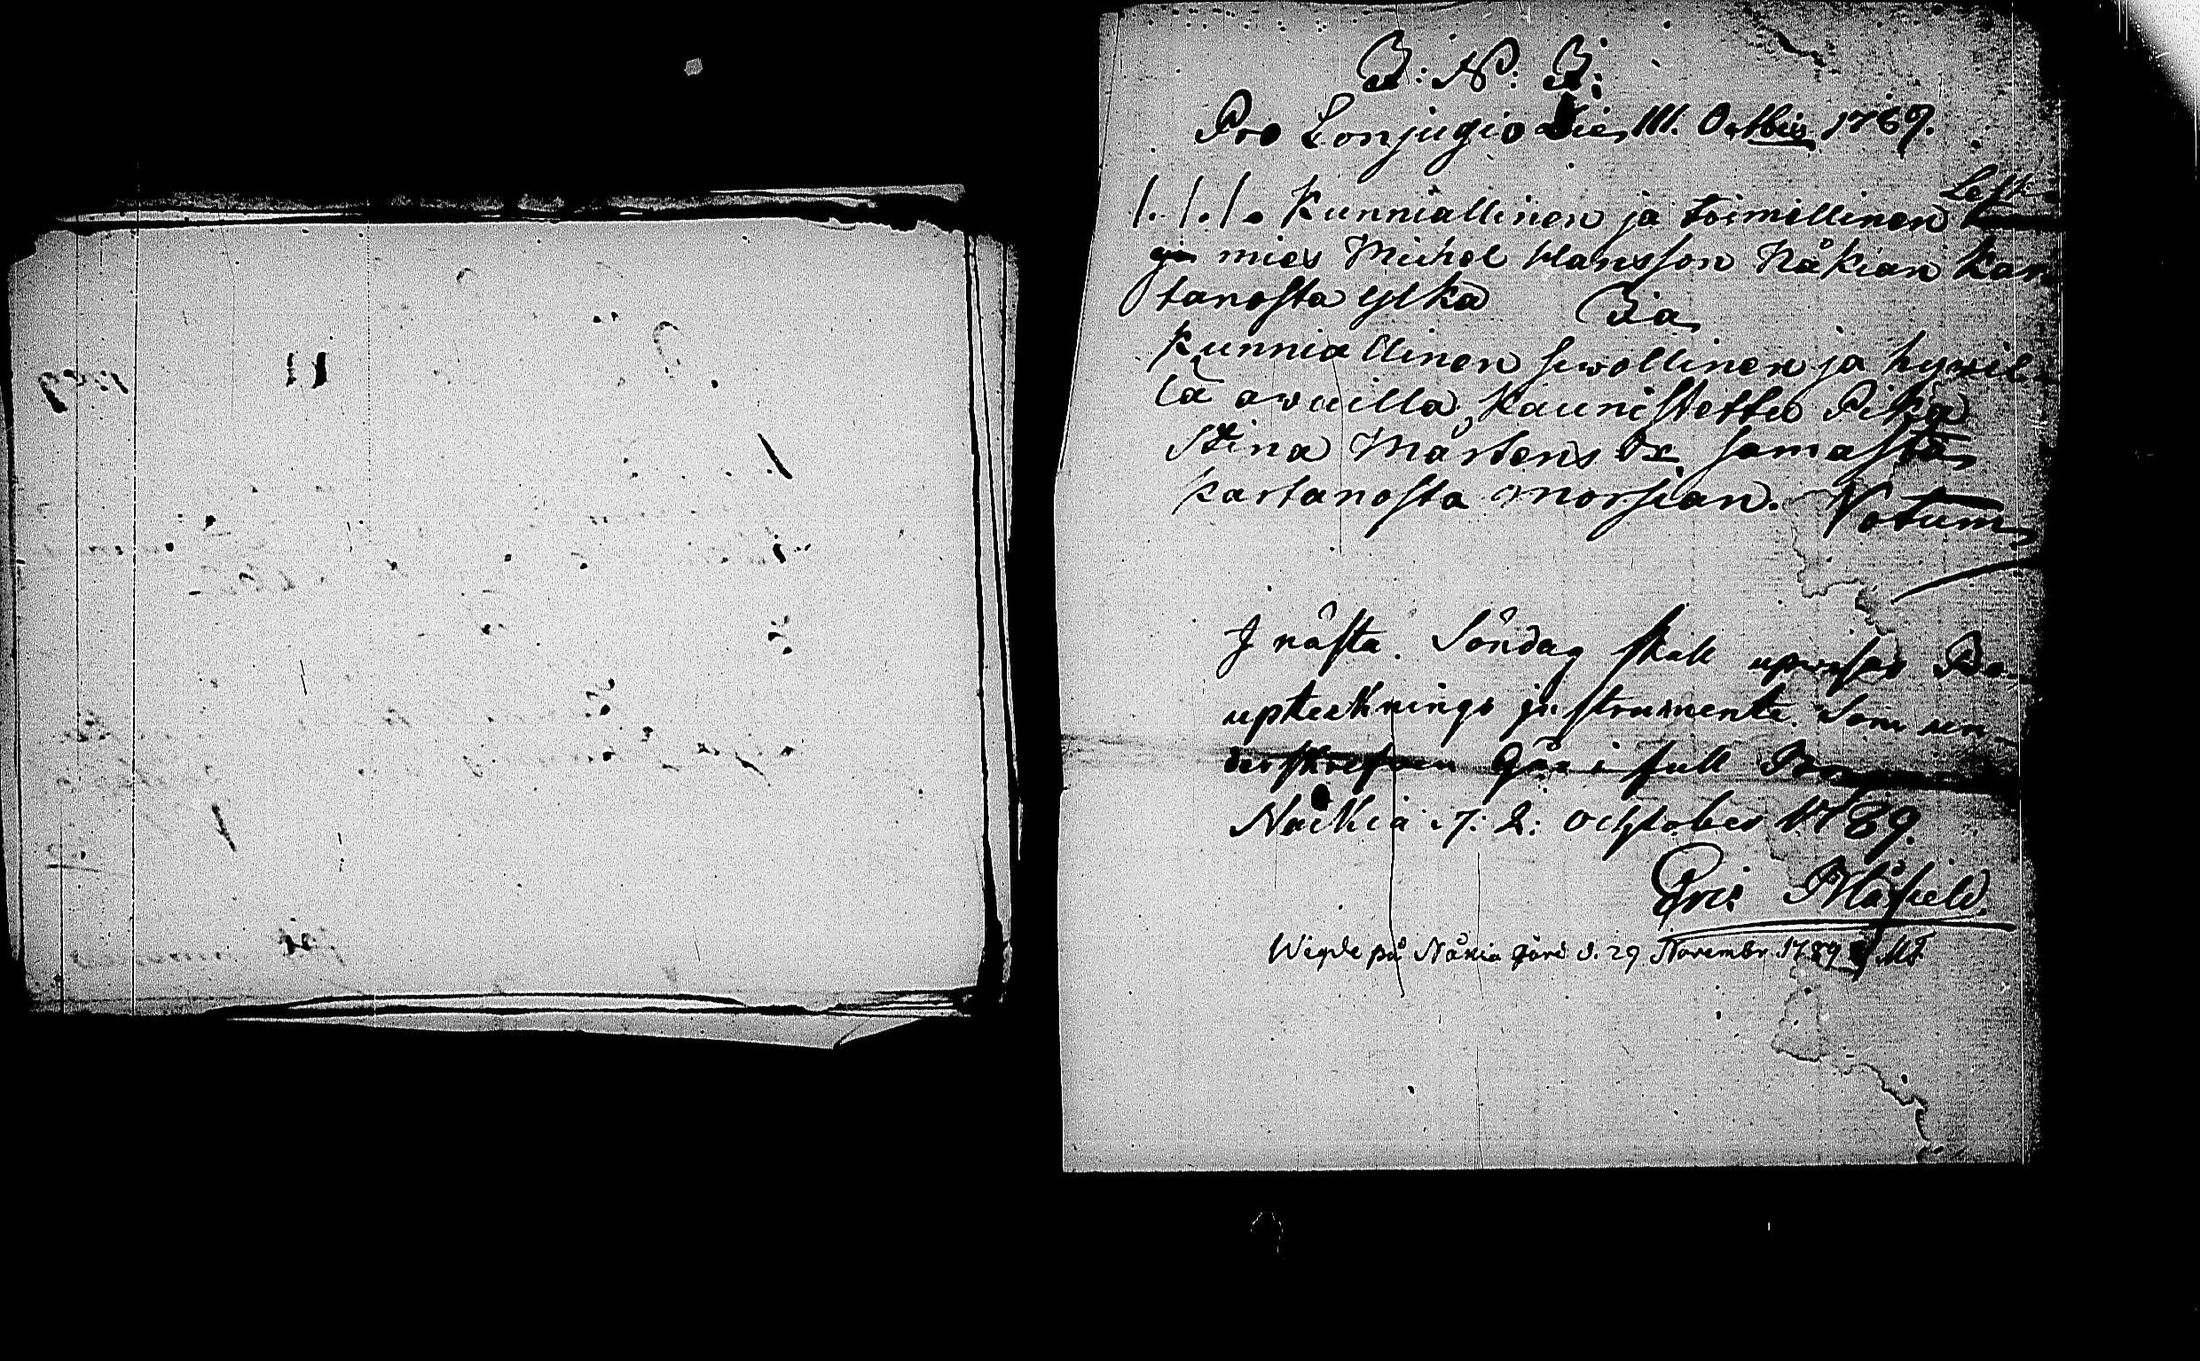 J: N: J:
Pro Conjugio Die III. Octbris 1789.
/./././. Kunniallinen ja toimellinen Lest
mies Michel Hansson Nåkian Kar
tanosta ylkä Ja
Kunniallinen siwollinen ja hywil
lä awuilla Kaunistettu Pika
Stina Mårtens Dr. samasta
Kartanosta morsian. Votum
I nästa. Söndag skall upwisas Bo
upteeknings instrumente. Som un
derskrefwen Går i full
Näkia d. 2: October 1789.
Eric Blåfield.
Wigde på Näkia gård d. 29 Novembr. 1789